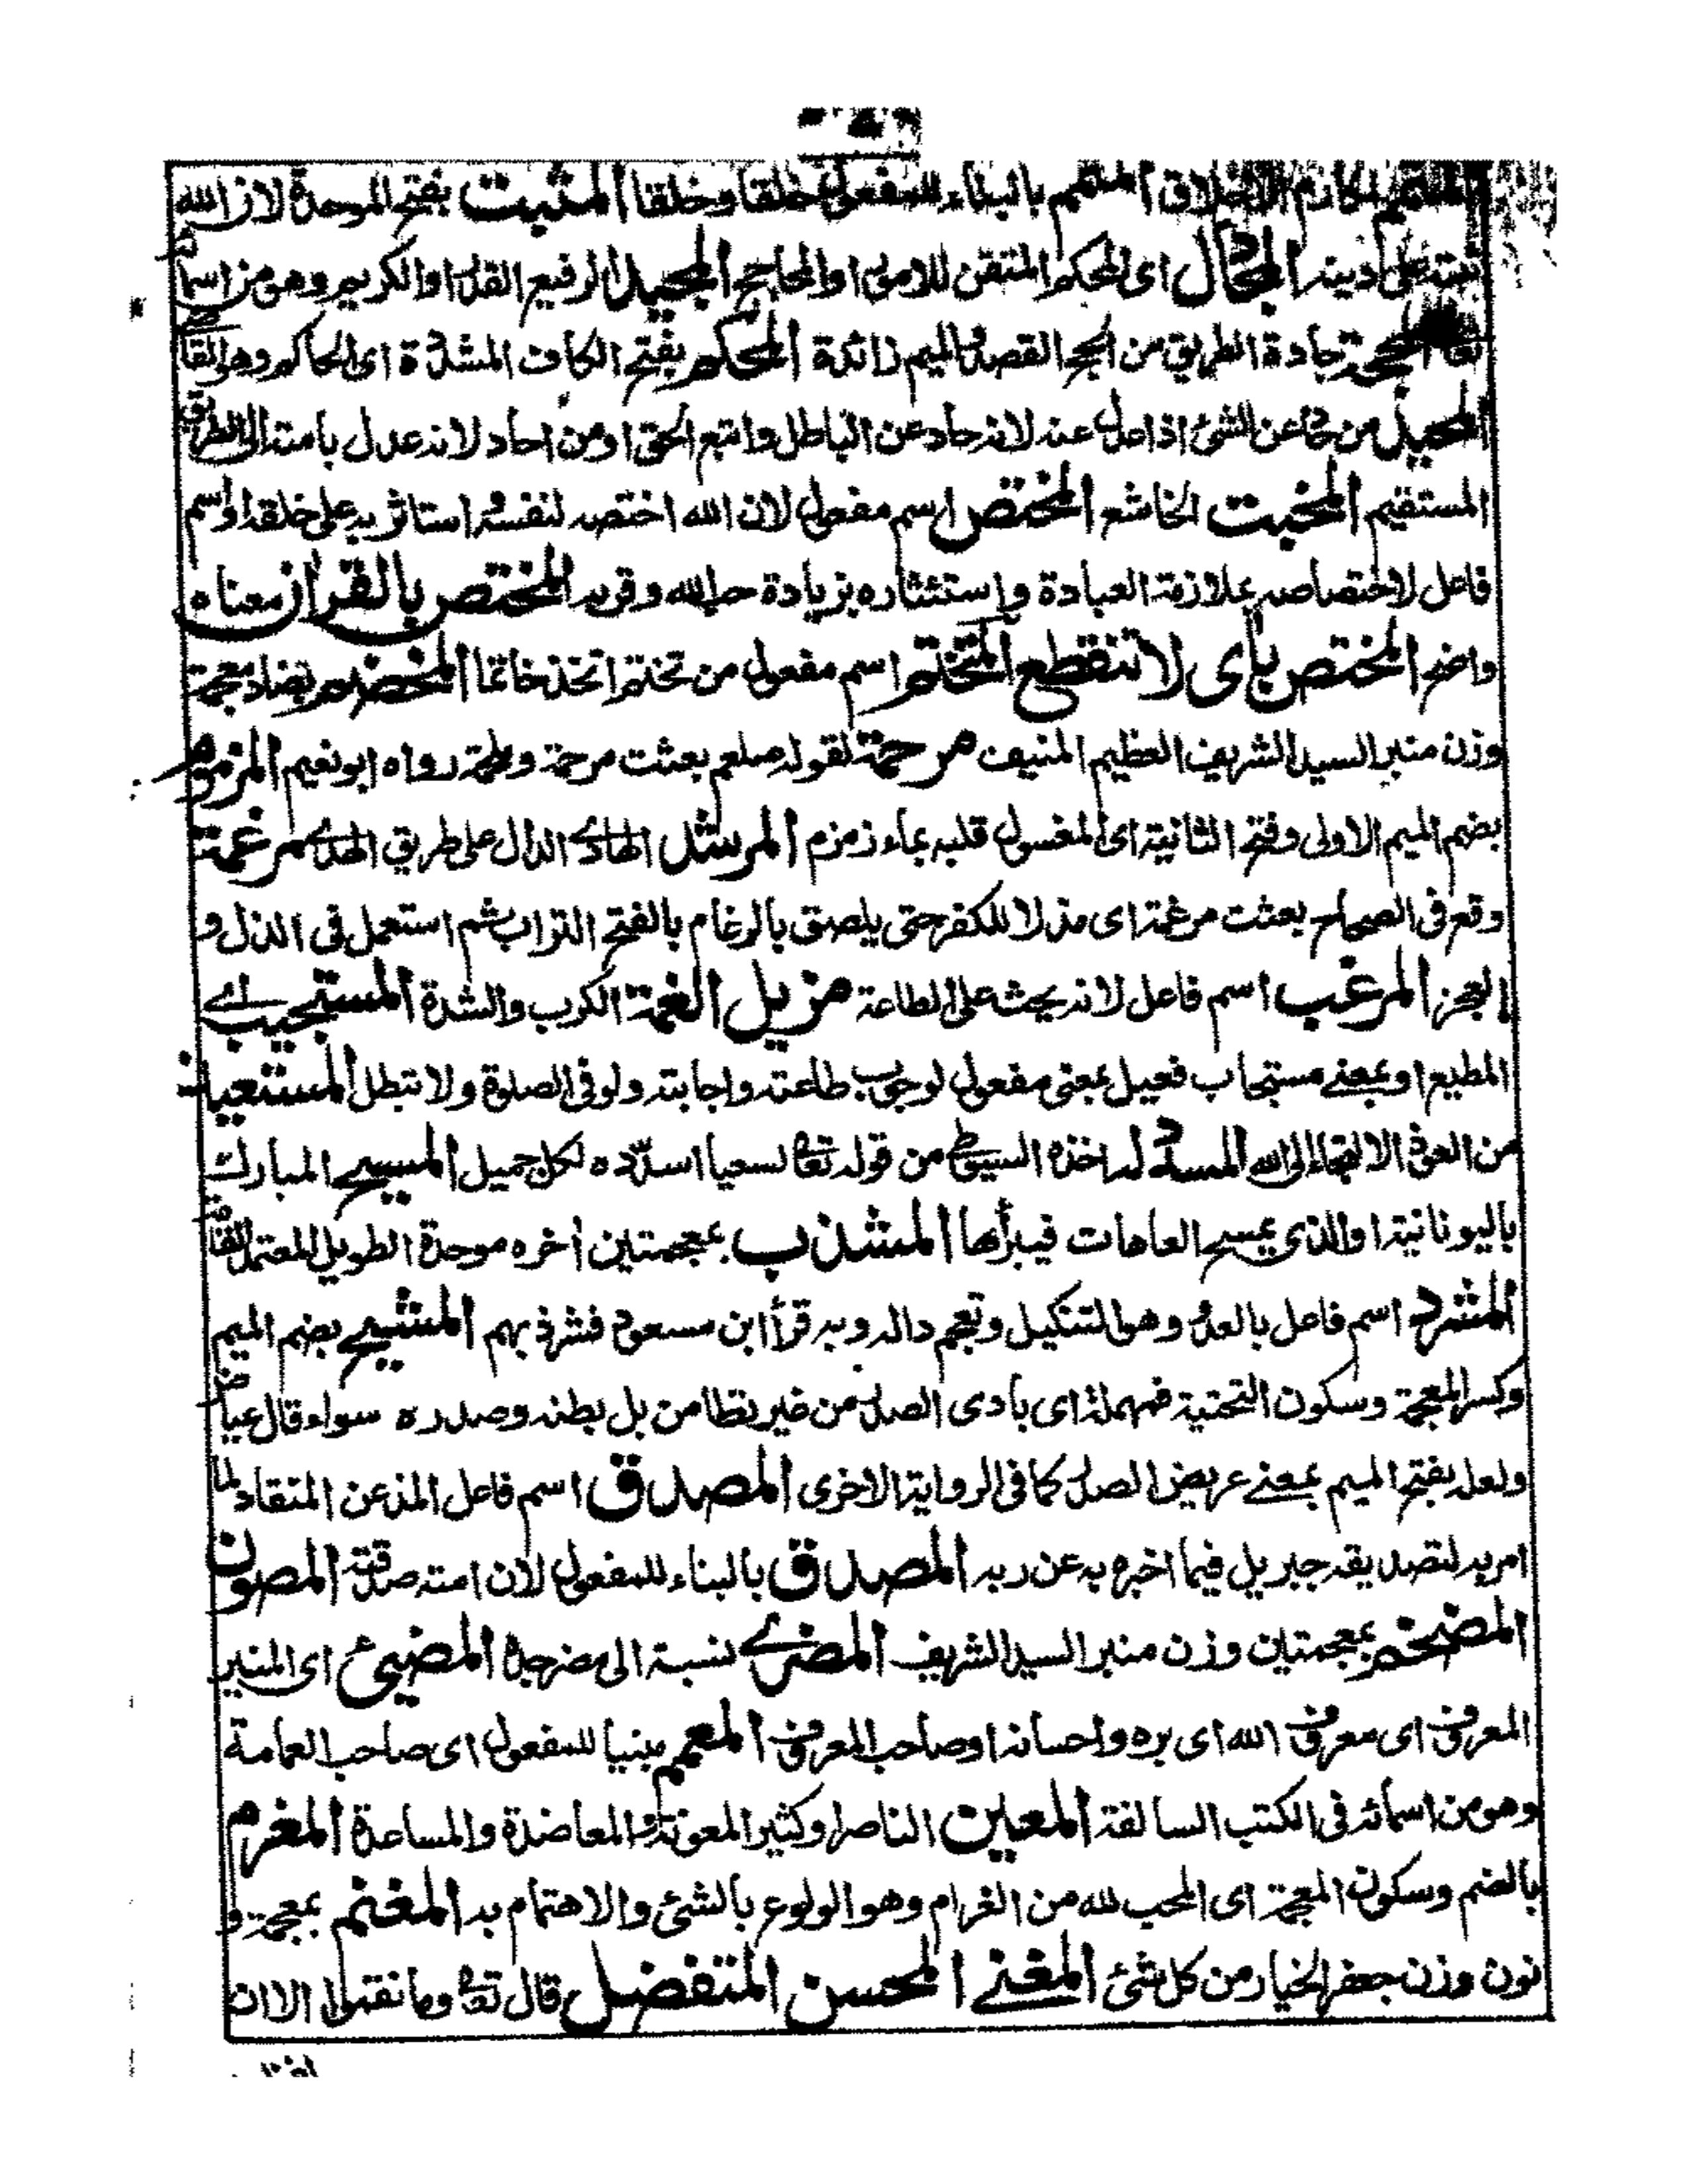 المتمم لمكارم الاخلاق المتمم بالبناء للمفعول خلقا وخلقا المثبت بفتح الموحدة لان الله
ثبته على دينه المجادل اى المحكم المتقن للامور او المحاجج المجيد الرفيع القدر او الكريم وهو من اسمائه
تعالى المحجة جادة الطريق من الحج القصد والميم زائدة المحكم بفتح الكاف المشددة اى الحاكم وهو القاضى
المحيد من حاد عن الشئ اذا عدل عنه لانه حاد عن الباطل واتبع الحق او من احاد لانه عدل بامته الى الطريق
المستقيم المخبت الخاشع المختص اسم مفعول لان الله اختصه لنفسه واستاثر به على خلقه او اسم
فاعل لاختصاصه بملازمة العبادة واستئثاره بزيادة حب الله وقربه المختص بالقران معناه
واضح المختص بأى لا تنقطع المتختم اسم مفعول من تختم اتخذ خاتما المخضم بضاد معجمة
وزن منبر السيد الشريف العظيم المنيف مرحمة لقوله صلعم بعثت مرحمة وملحمة رواه ابو نعيم المزمزم
بضم الميم الاولى وفتح الثانية اى المغسول قلبه بماء زمزم المرشد الهادى الدال على طريق الهدى مرغمة
وقع فى الصحاح بعثت مرغمة اى مذلا للكفر حتى يلصق بالرغام بالفتح التراب ثم استعمل فى الذل و
العجز المرغب اسم فاعل لانه يحث على الطاعة مزيل الغمة الكرب والشدة المستجيب اى
المطيع او بمعنى مستجاب فعيل بمعنى مفعول لوجوب طاعته واجابته ولو فى الصلوة ولا تبطل المستعيذ
من العوذ الالتجاء الى الله المسدد له اخذه السيوطى من قوله تعالى لسعيا اسدّده لكل جميل المسيح المبارك
باليونانية او الذى يمسح العاهات فيبرأها المشذب بمعجمتين اخره موحدة الطويل المعتدل القامة
المشرد اسم فاعل بالعدو وهو التنكيل وتعجم داله وبه قرأ ابن مسعود فشرذ بهم المشيح بضم الميم
وكسر المعجمة وسكون التحتية فمهملة اى بادى الصدر من غير تطامن بل بطنه وصدره سواء قال عياض
ولعله بفتح الميم بمعنى عريض الصدر كما فى الرواية الاخرى المصدق اسم فاعل المذعن المنقاد لما
امر به لتصديقه جبريل فيما اخبره به عن ربه المصدق بالبناء للمفعول لان امته صدقته المصون
المضخم بمعجمتين وزن منبر السيد الشريف المضرى نسبة الى مضر جده المضيئ اى المنير
المعروف اى معروف الله اى بره واحسانه او صاحب المعروف المعمم مبنيا للمفعول اى صاحب العمامة
وهو من اسمائه فى الكتب السالفة المعين الناصر او كثير المعونة والمعاضدة والمساعدة المغرم
بالضم وسكون المعجمة اى المحب لله من الغرام وهو الولوع بالشئ والاهتمام به المغنم بمعجمة و
نون وزن جعفر الخيار من كل شئ المغنى المحسن المتفضل قال تعالى وما نقموا الا ان